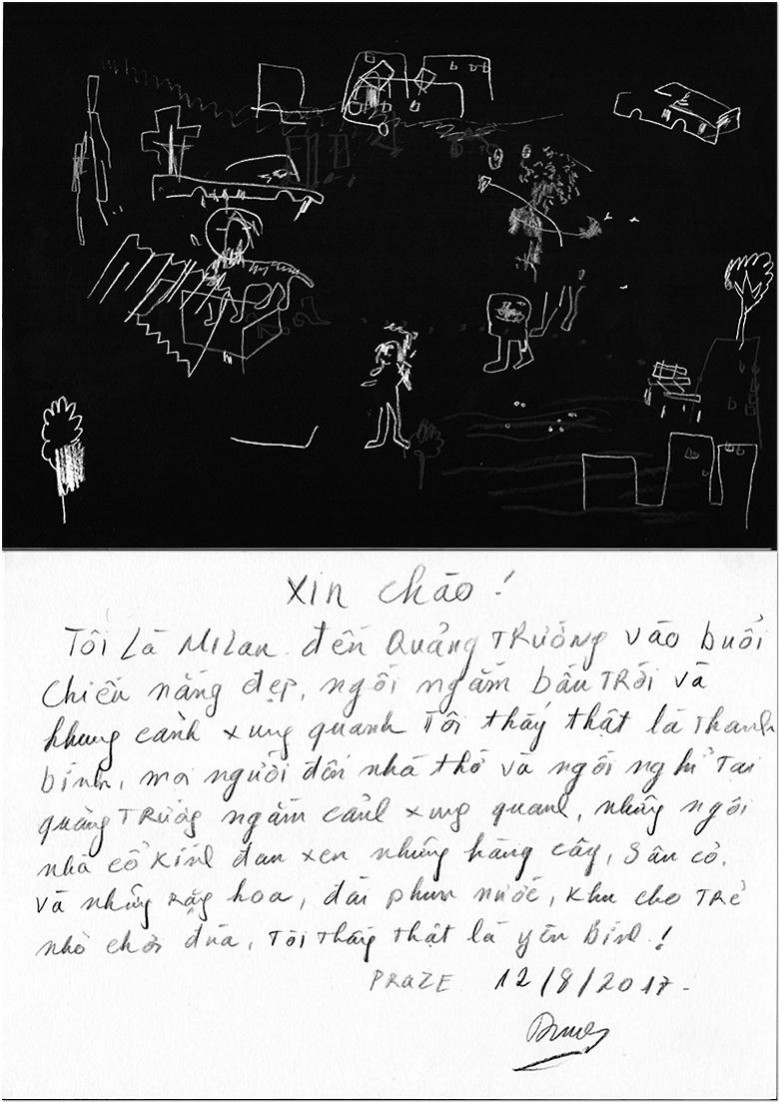 Xin chào!
Tôi là Milan. đến Quảng Trường vào buổi
chiều nắng đẹp, ngồi ngắm bầu Trời và
khung cảnh xung quanh Tôi thấy thật là Thanh
bình, mọi người đến nhà thờ và ngồi nghỉ Tại
quảng Trường ngắm cảnh xung quanh, những ngôi
nhà cổ kính đan xen những hàng cây, sân cỏ,
và những hoa, đài phun nước, khu cho Trẻ
nhỏ chơi đùa, Tôi Thấy Thật là yên bình.!
PRAZE 12/8/2017-